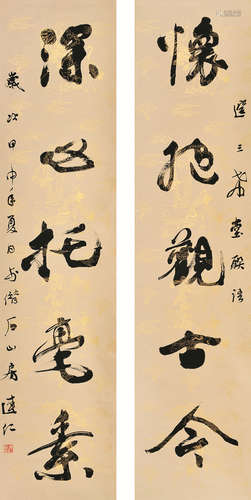 懷抱觀古今
選三希堂聯語
深心托毫素
歲次甲申年夏月於 石山房